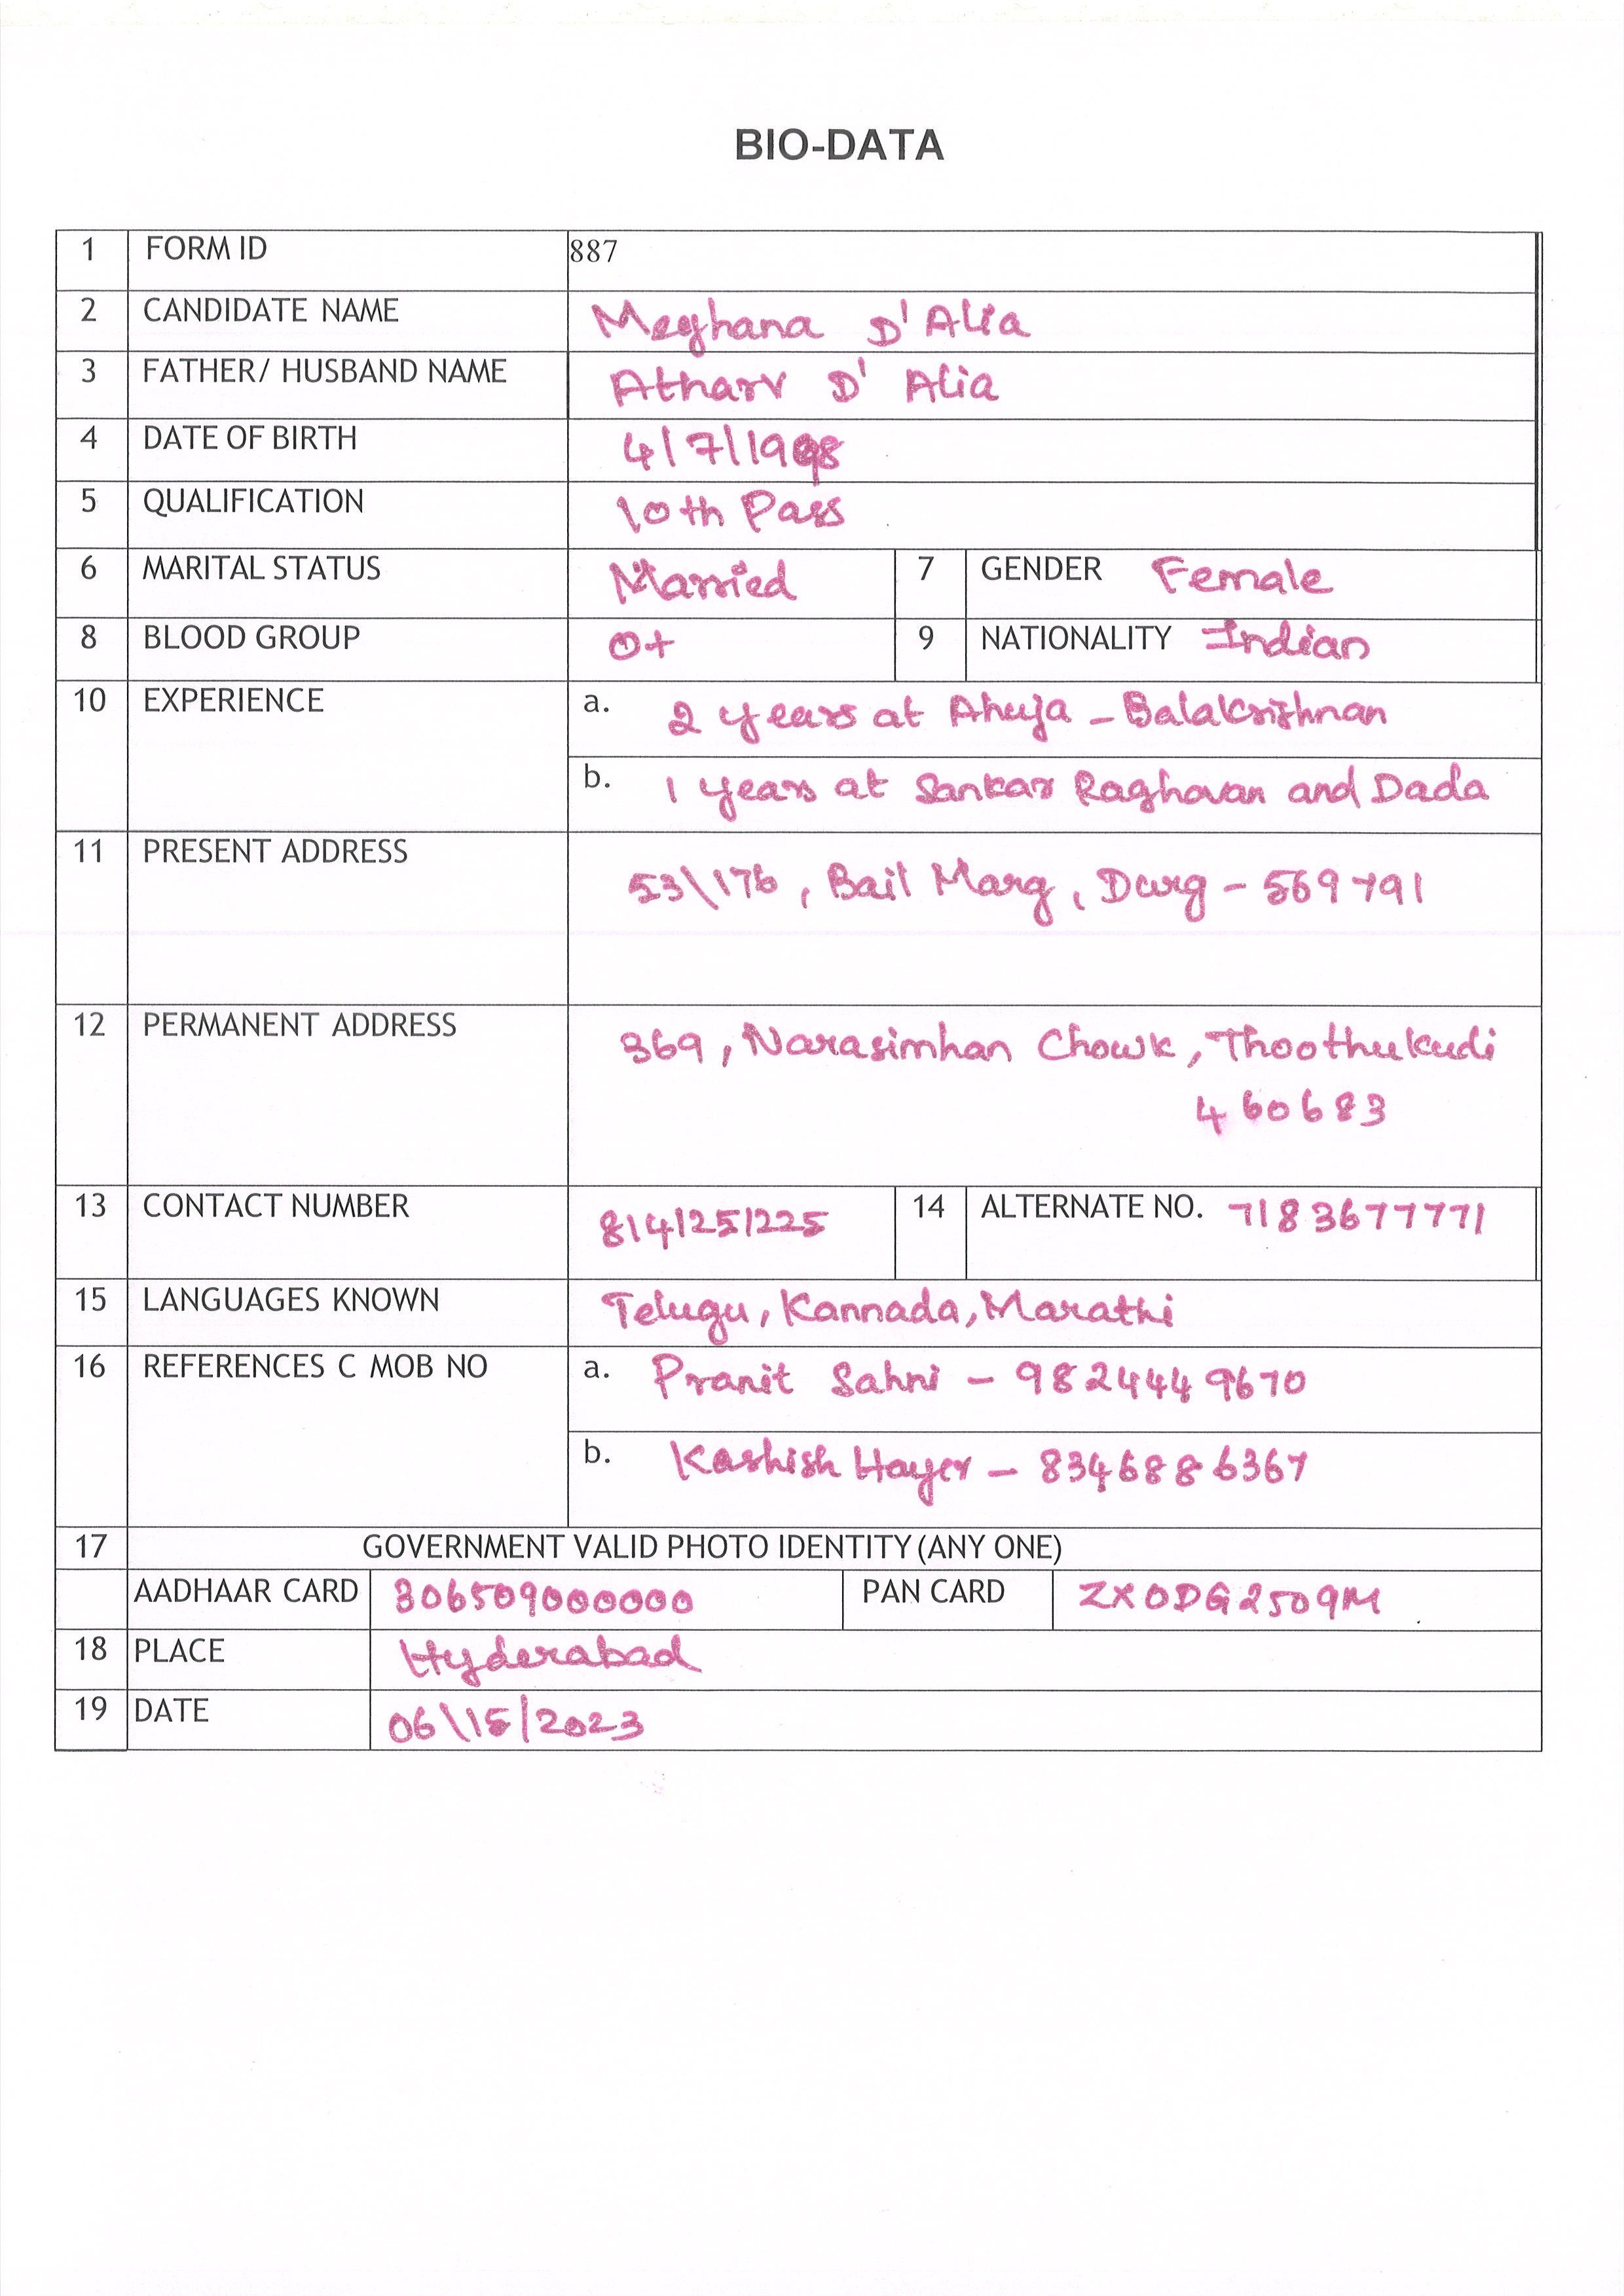 BIO-DATA
1 FORM ID 887
2 CANDIDATE NAME Meghana D'Alia
3 FATHER/ HUSBAND NAME Atharv D' Alia
4 DATE OF BIRTH
5 QUALIFICATION 10th Pass
6 MARITAL STATUS Married 7 GENDER Female
8 BLOOD GROUP O+ 9 NATIONALITY Indian
10 EXPERIENCE a. 2 years at Ahuja - Balakrishnan
b. 1 years at Sankar Raghavan and Dada
11 PRESENT ADDRESS 53\176, Bail Marg, Durg - 569791
12 PERMANENT ADDRESS 369, Narasimhan Chowk, Thoothukudi
460683
13 CONTACT NUMBER 8141251225 14 ALTERNATE NO. 7183677771
15 LANGUAGES KNOWN Telugu, Kannada, Marathi
16 REFERENCES C MOB NO a. Pranit Sahni - 9824449670
b. Kashish Hayer - 8346886367
17 GOVERNMENT VALID PHOTO IDENTITY (ANY ONE)
AADHAAR CARD 306509000000 PAN CARD ZXODG2509M
18 PLACE Hyderabad
19 DATE 06\15/2023